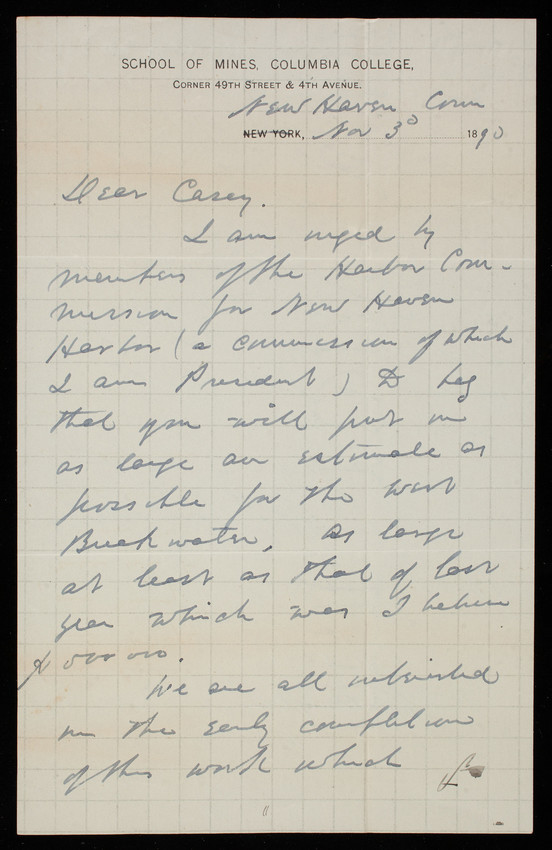 SCHOOL OF MINES, COLUMBIA COLLEGE,
CORNER 49TH STREET & 4TH AVENUE.
New Haven Conn
NEW YORK, Nov 3d 1890
Dear Casey.
I am urged by
members of the Harbor Com-
mission for New Haven
Harbor (a commission of which
I am President) to beg
that you will put in
as large an estimate as
possible for the West
Breakwater, as large
at least as that of last
year which was I believe
We are all interested
in the early completion
of this work which